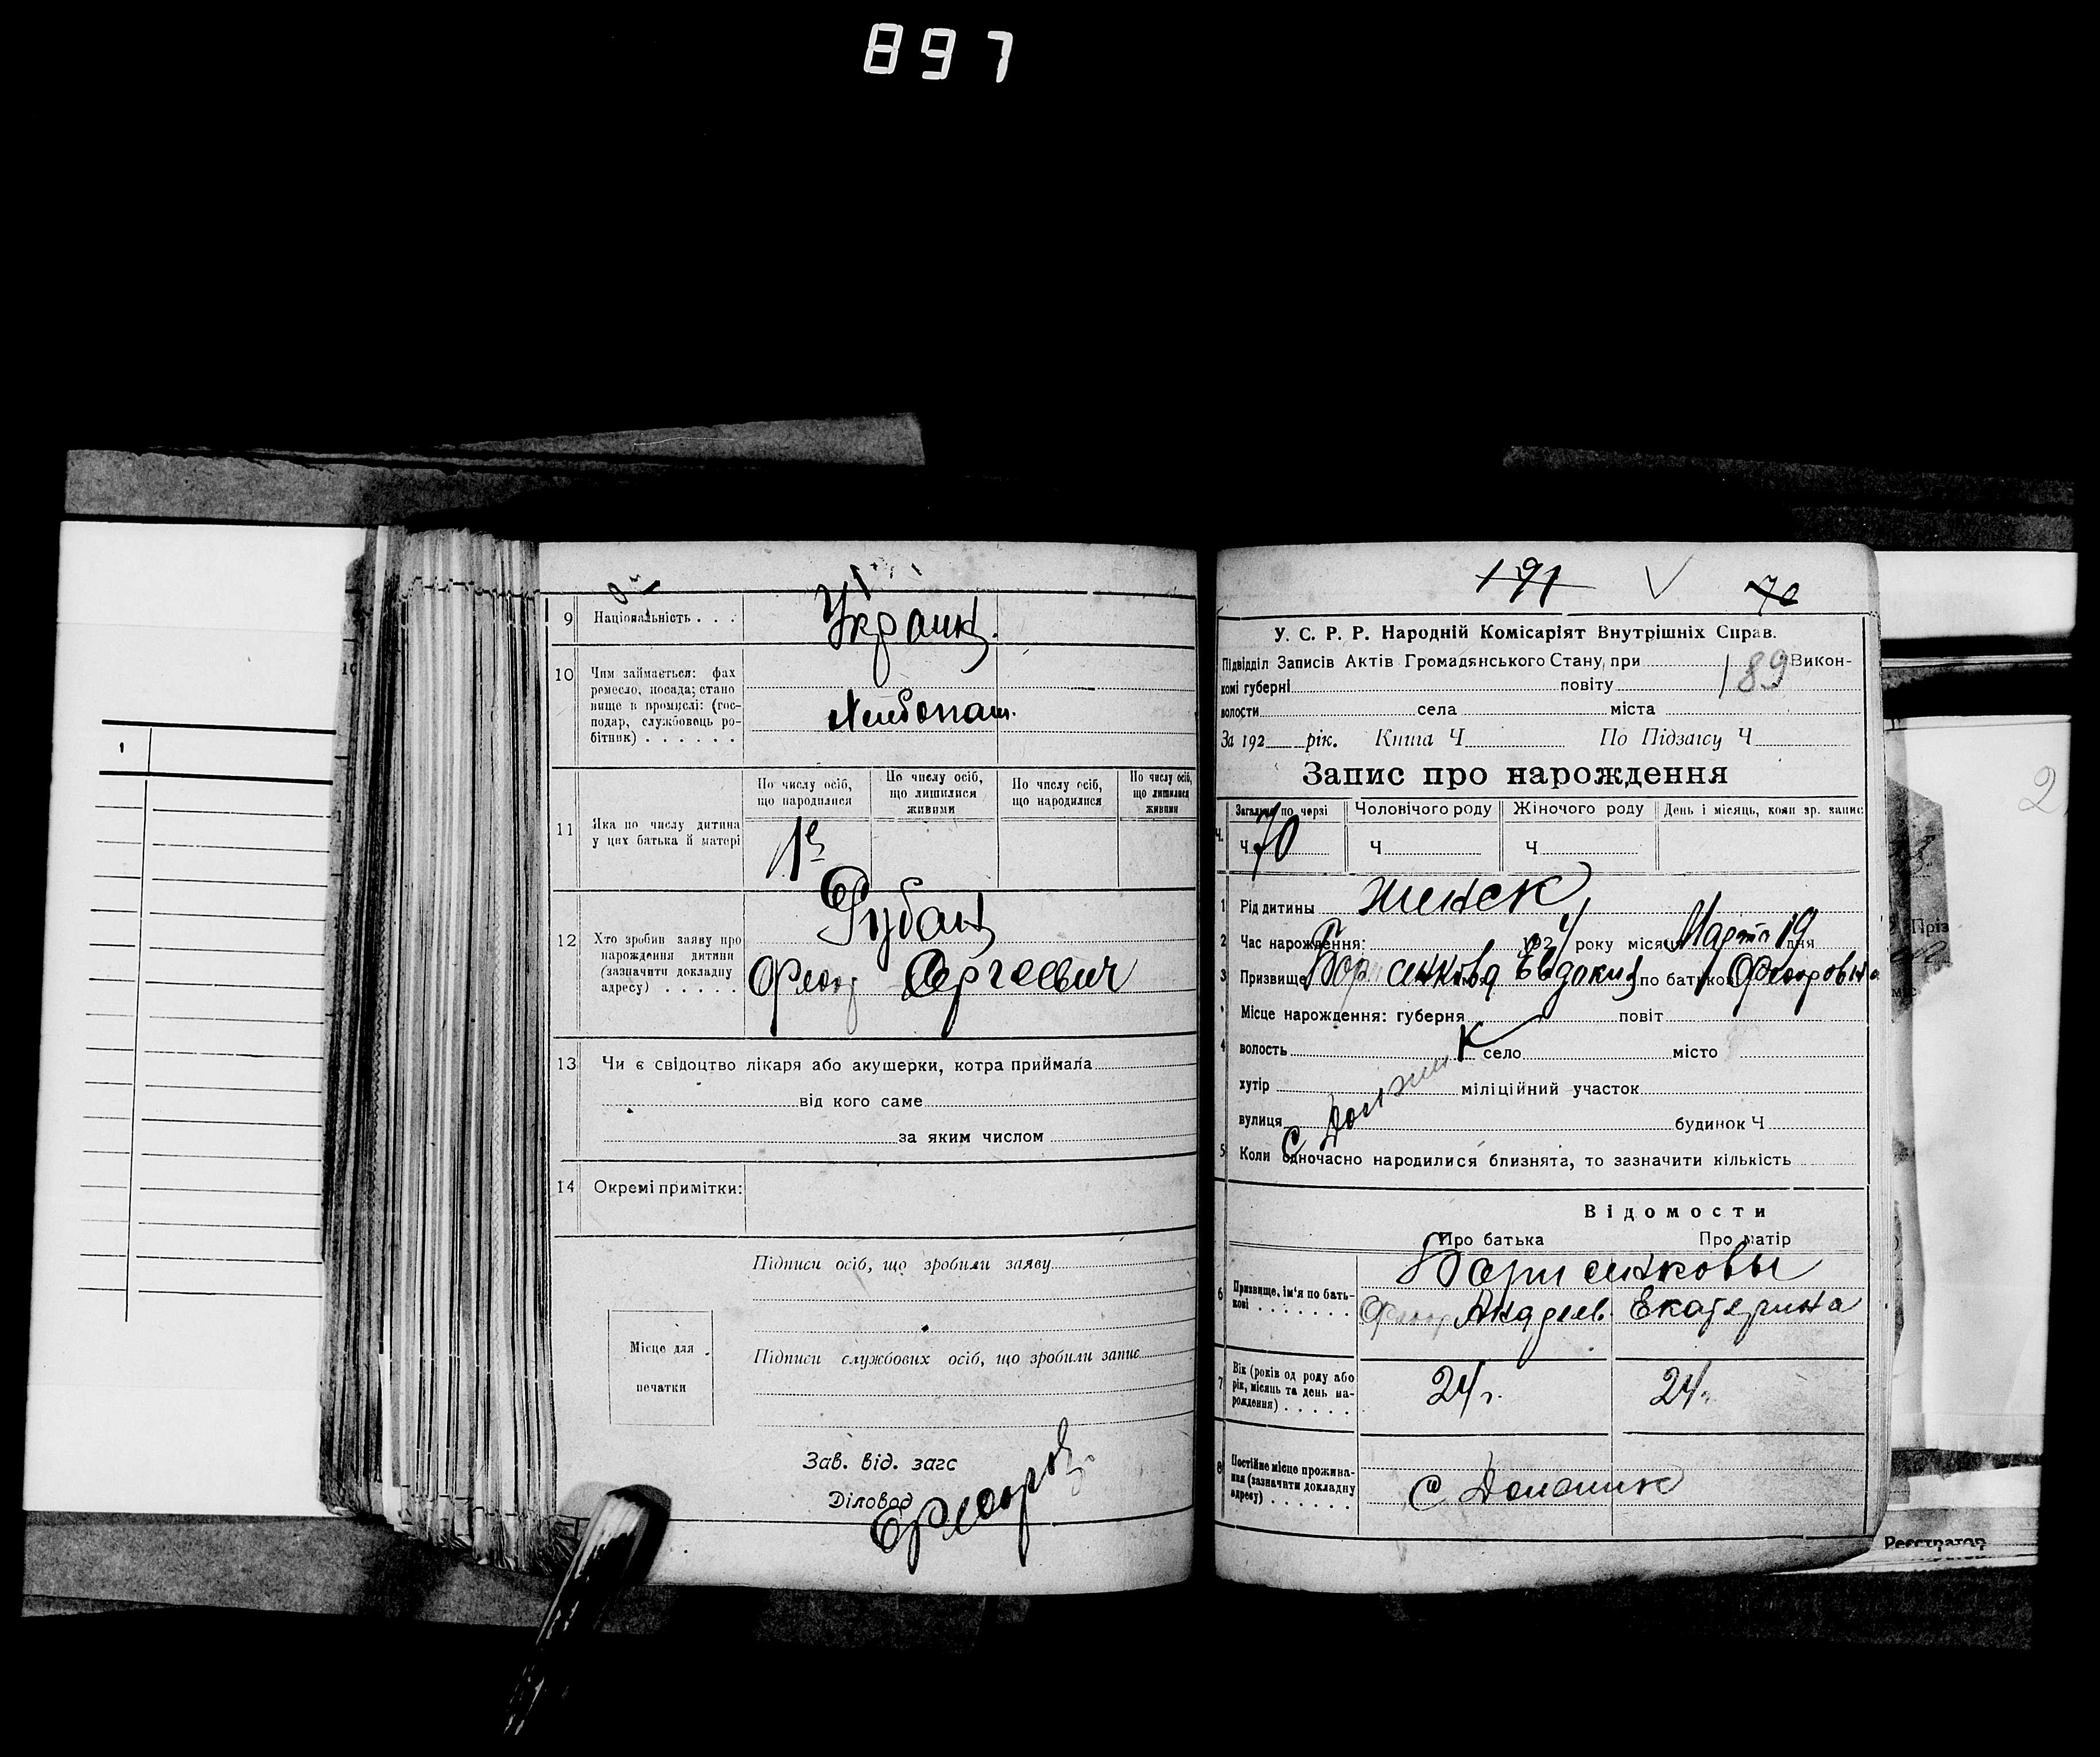 897
1
9 Національність . . . Украинц.
10 Чим займається: фах
ремесло, посада; стано
вище в промислі: (гос-
подар, службовець ро-
бітник) . . . . . .
Хлебопаш.
По числу осіб, що народилися
По числу осіб, що лишилися живими
По числу осіб, що народилися
По числу осіб, що лишилися живими
11 Яка по числу дитина
у цих батька й матері
12 Хто зробив заяву про
нарождення дитини
(зазначити докладну
адресу) . . . . .
Рубан
Федор Сергеевич
13 Чи є свідоцтво лікаря або акушерки, котра приймала
від кого саме
за яким числом
14 Окремі примітки:
Підписи осіб, що зробили заяву
Місце для
печатки
Підписи службових осіб, що зробили запис
Зав. від. загс
Діловод
191
70
У. С. Р. Р. Народній Комісаріят Внутрішніх Справ.
Підвідділ Записів Актів Громадянського Стану, при 189 Викон-
комі губерні повіту
волости села міста
За 192 рік. Книга Ч По Підзагсу Ч
Запис про нарождення
Загальна по черзі Чоловічого роду Жіночого роду День і місяць, коли зр. запис
Ч. Ч 70 Ч Ч
1 Рід дитини женск
2 Час нарождення: 1924 року місяця Марта 19 дня
3 Призвище Борисенкова Евдокия по батькові Федоровна
Місце нарождення: губерня повіт
4 волость село місто
хутір міліційний участок
вулиця будинок Ч
с Должик
5 Коли одночасно народилися близнята, то зазначити кількість
Відомости
Про батька Про матір
6 Призвище, ім'я по бать-
кові . . . . . . .
Борисенковы
Федор Андреев. Екатерина
7 Вік (років од роду або
рік, місяць та день на-
рождення) . . . . .
24 г. 24 г.
8 Постійне місце прожива-
ння (зазначити докладну
адресу) . . . . . .
с Должик
Пріз
Реєстратор
2